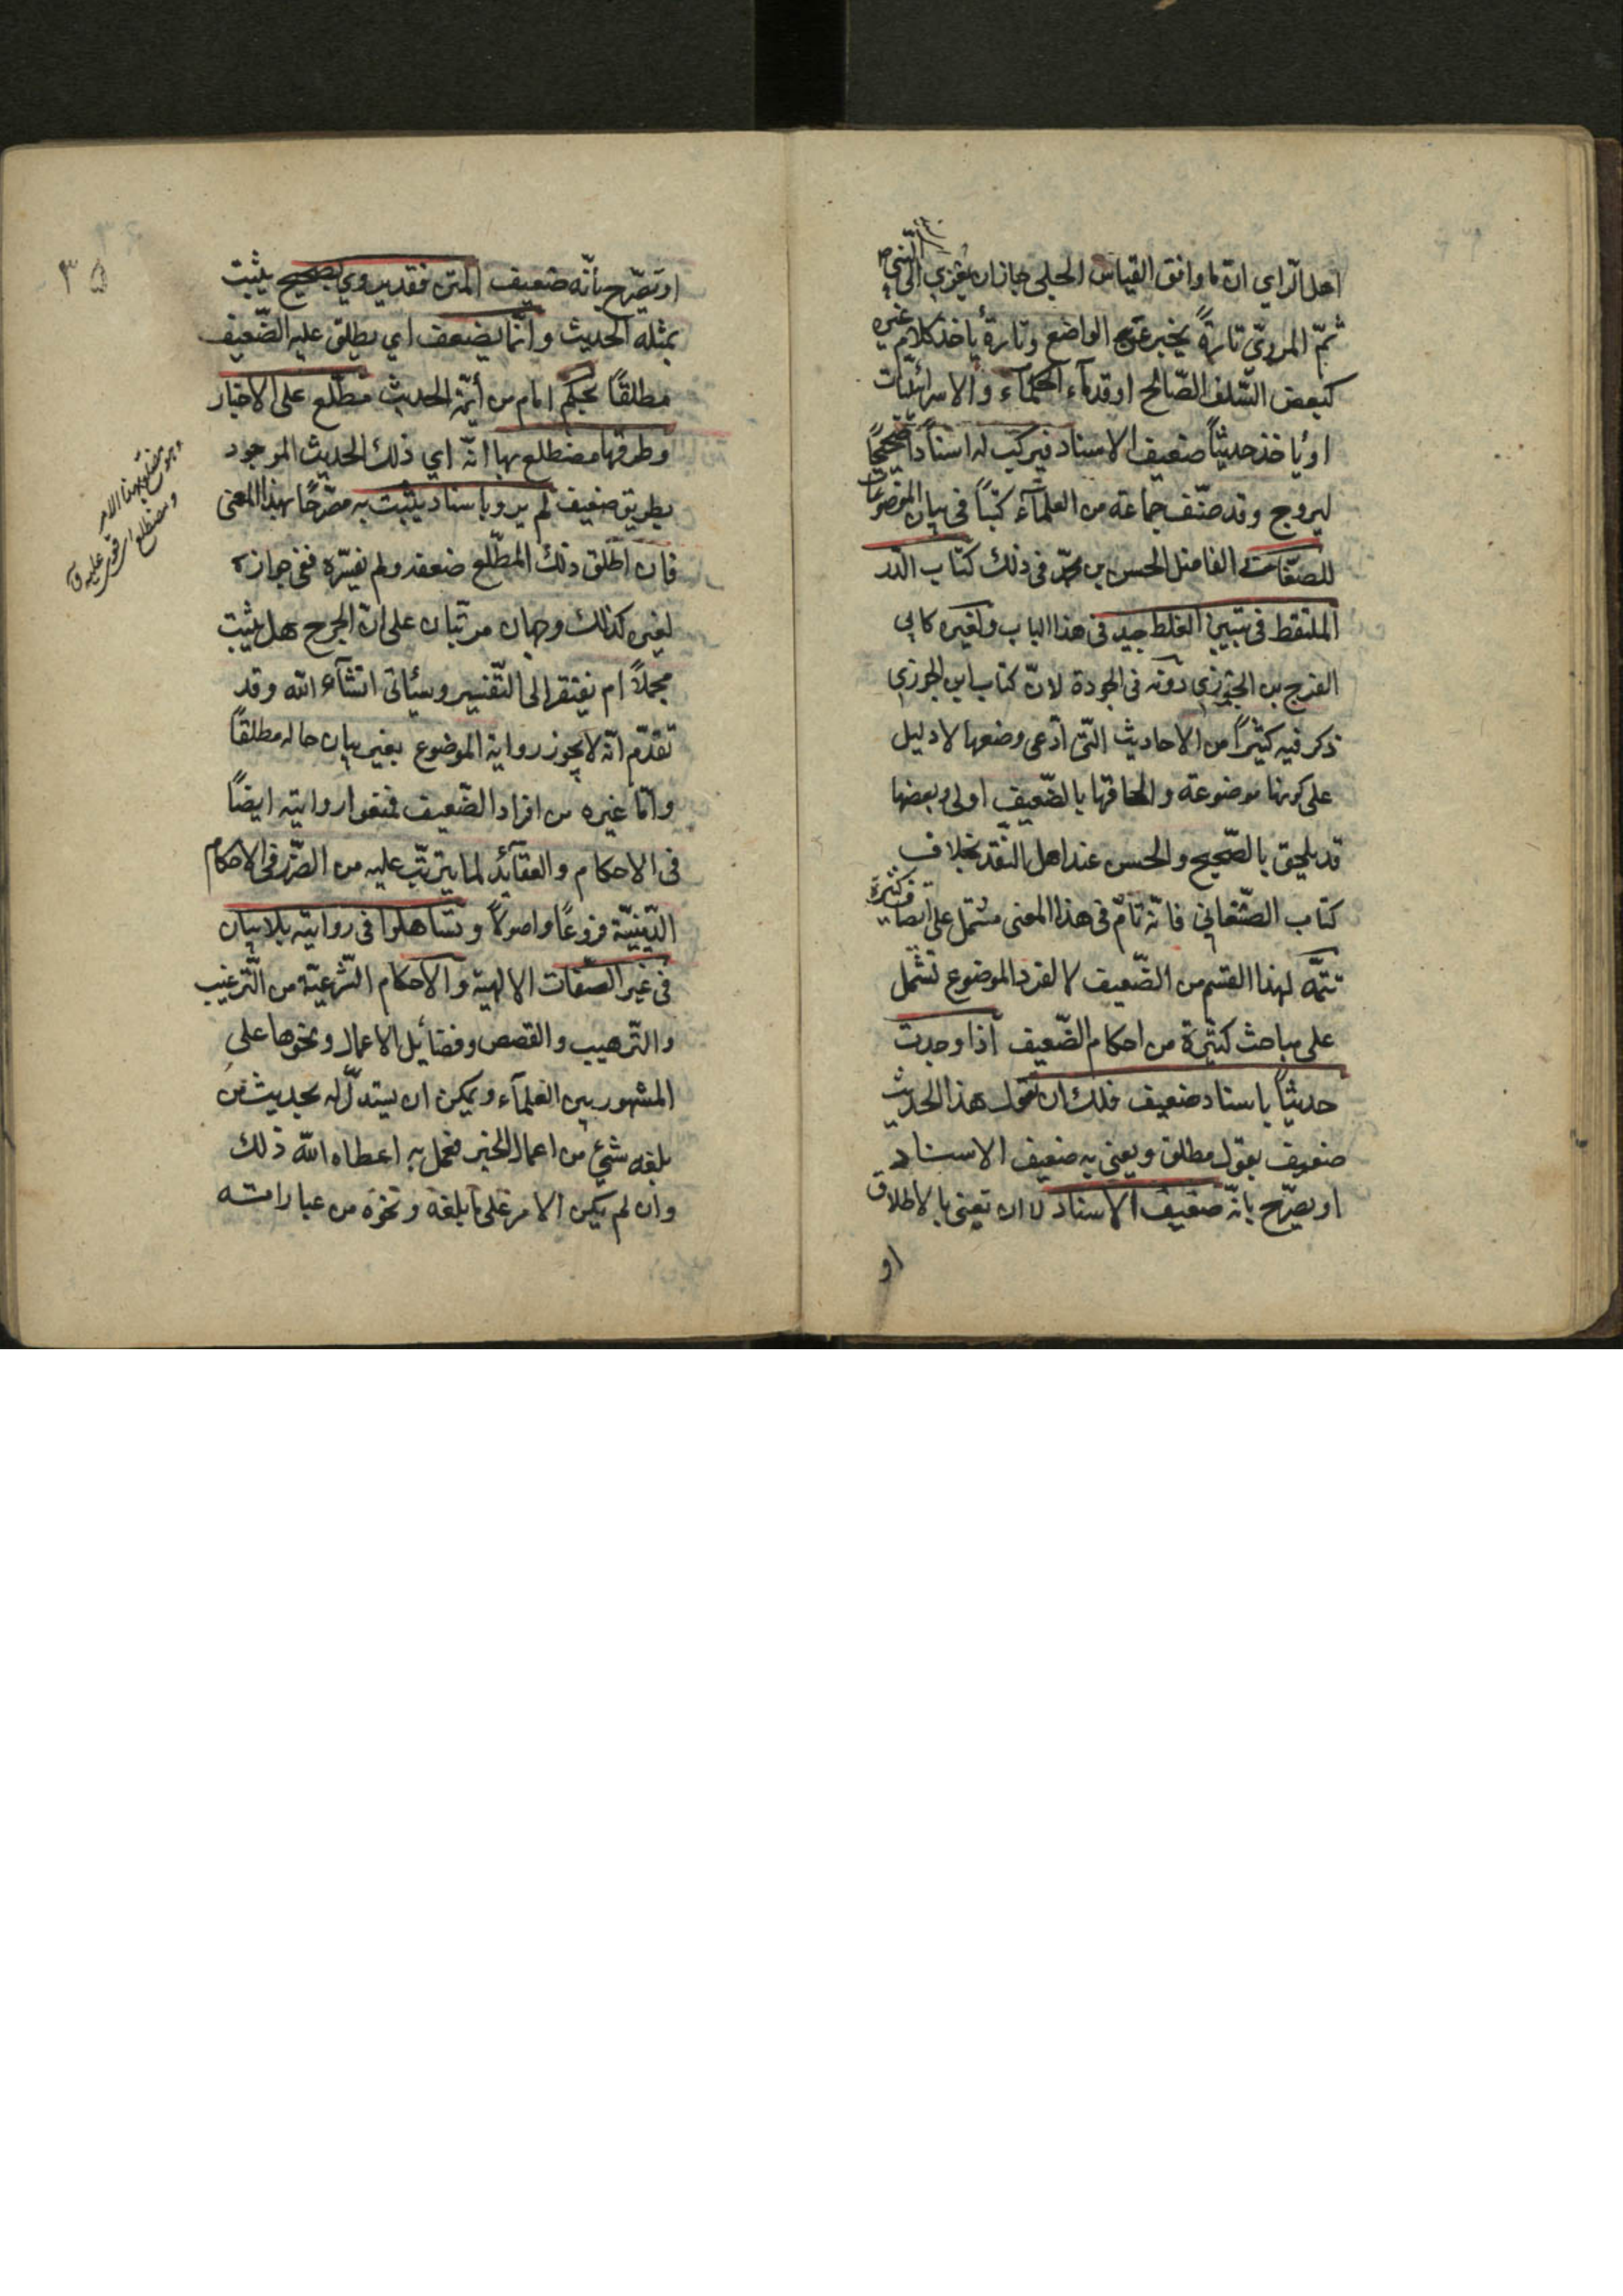 اهل الرأي ان ما وافق القياس الجلي جاز ان يعزى الى النبي ص
ثم المروي تارة يخترعه الواضع وتارة يأخذ كلام غيره
كبعض السلف الصالح او قدماء الحكماء والاسرائليات
او يأخذ حديثاً ضعيف الاسناد فيركب له اسناداً صحيحاً
ليروج وقد صنف جماعة من العلماء كتباً فى بيان الموضوعات
للصغاني الفاضل الحسن بن محمد فى ذلك كتاب الدر
الملتقط فى تبيين الغلط جيد فى هذا الباب ولغيره كابي
الفرج بن الجوزي دونه فى الجودة لان كتاب ابن الجوزي
ذكر فيه كثيراً من الاحاديث التي ادعى وضعها لا دليل
على كونها موضوعة والحاقها بالضعيف اولى وبعضها
قد يلحق بالصحيح والحسن عند اهل النقد بخلاف
كتاب الصغاني فانه تام فى هذا المعنى مشتمل على انصاف كثيرة
تتمه لهذا القسم من الضعيف لا لفرد الموضوع تشمل
على مباحث كثيرة من احكام الضعيف اذا وجدت
حديثاً باسناد ضعيف فلك ان تقول هذا الحديث
ضعيف بقول مطلق ويعنى به ضعيف الاسناد
او يصرح بانه ضعيف الاسناد لا ان تعنى بالاطلاق
او
٣٥
او تصرح بأنه ضعيف المتن فقد يروي بصحيح يثبت
بمثله الحديث وانما يضعف اي يطلق عليه الضعيف
مطلقاً بحكم امام من أئمة الحديث مطلع على الاخبار
وطرقها مضطلع بها انه اي ذلك الحديث الموجود
بطريق ضعيف لم يرو باسناد يثبت به مصرحاً بهذا المعنى
فان اطلق ذلك المطلع ضعفه ولم يفسره ففى جوازه
لغيره كذلك وجهان مرتبان على ان الجرح هل يثبت
مجملاً ام يفتقر الى التفسير وسيأتى انشآء الله وقد
تقدم انه لا يجوز رواية الموضوع بغير بيان حاله مطلقاً
وامّا غيره من افراد الضعيف فمنعوا روايته ايضاً
فى الاحكام والعقآئد لما يترتب عليه من الضرر فى الاحكام
الدينية فروعاً واصولاً وتساهلوا فى روايته بلا بيان
فى غير الصفات الالهية والاحكام الشرعية من الترغيب
والترهيب والقصص وفضآئل الاعمال ونحوها على
المشهور بين العلمآء ويمكن ان يستدل له بحديث من
بلغه شيئ من اعمال الخير فعمل به اعطاه الله ذلك
وان لم يكن الامر على ما بلغه ونحوه من عباراته
وهو مضطلع بهذا الامر
اي قوي عليه ق